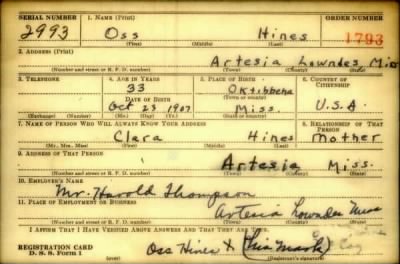 SERIAL NUMBER 1. NAME (Print) ORDER NUMBER
2993 Oss Hines 1793
(First) (Middle) (Last)
2. ADDRESS (Print)
Artesia Lowndes Miss
(Number and street or R. F. D. number) (Town) (County) (State)
3. TELEPHONE 4. AGE IN YEARS 5. PLACE OF BIRTH 6. COUNTRY OF CITIZENSHIP
33 Oktibbeha
DATE OF BIRTH (Town or county)
Oct 23 1907 Miss. U.S.A.
(Exchange) (Number) (Mo.) (Day) (Yr.) (State or country)
7. NAME OF PERSON WHO WILL ALWAYS KNOW YOUR ADDRESS 8. RELATIONSHIP OF THAT PERSON
Clara Hines Mother
(Mr., Mrs., Miss) (First) (Middle) (Last)
9. ADDRESS OF THAT PERSON
Artesia Miss.
(Number and street or R. F. D. number) (Town) (County) (State)
10. EMPLOYER'S NAME
Mr. Harold Thompson
11. PLACE OF EMPLOYMENT OR BUSINESS
Artesia Lowndes Miss
(Number and street or R. F. D. number) (Town) (County) (State)
I AFFIRM THAT I HAVE VERIFIED ABOVE ANSWERS AND THAT THEY ARE TRUE.
REGISTRATION CARD
D. S. S. Form 1 Oss Hines X (his Mark)